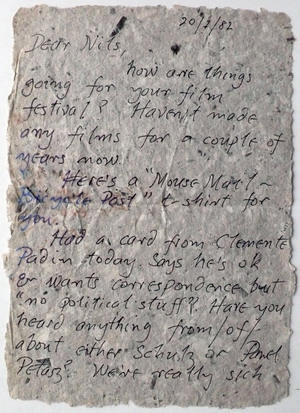 20/3/82
Dear Nils,
how are things
going for your film
festival? Haven't made
any films for a couple of
years now.
Here's a "Mouse Mail ~
Bicycle Post" t-shirt for
you.
Had a card from Clemente
Padin today. Says he's ok
& wants correspondence but
"no political stuff". Have you
heard anything from/of/
about either Schulz or Pavel
Petasz? We're really sick